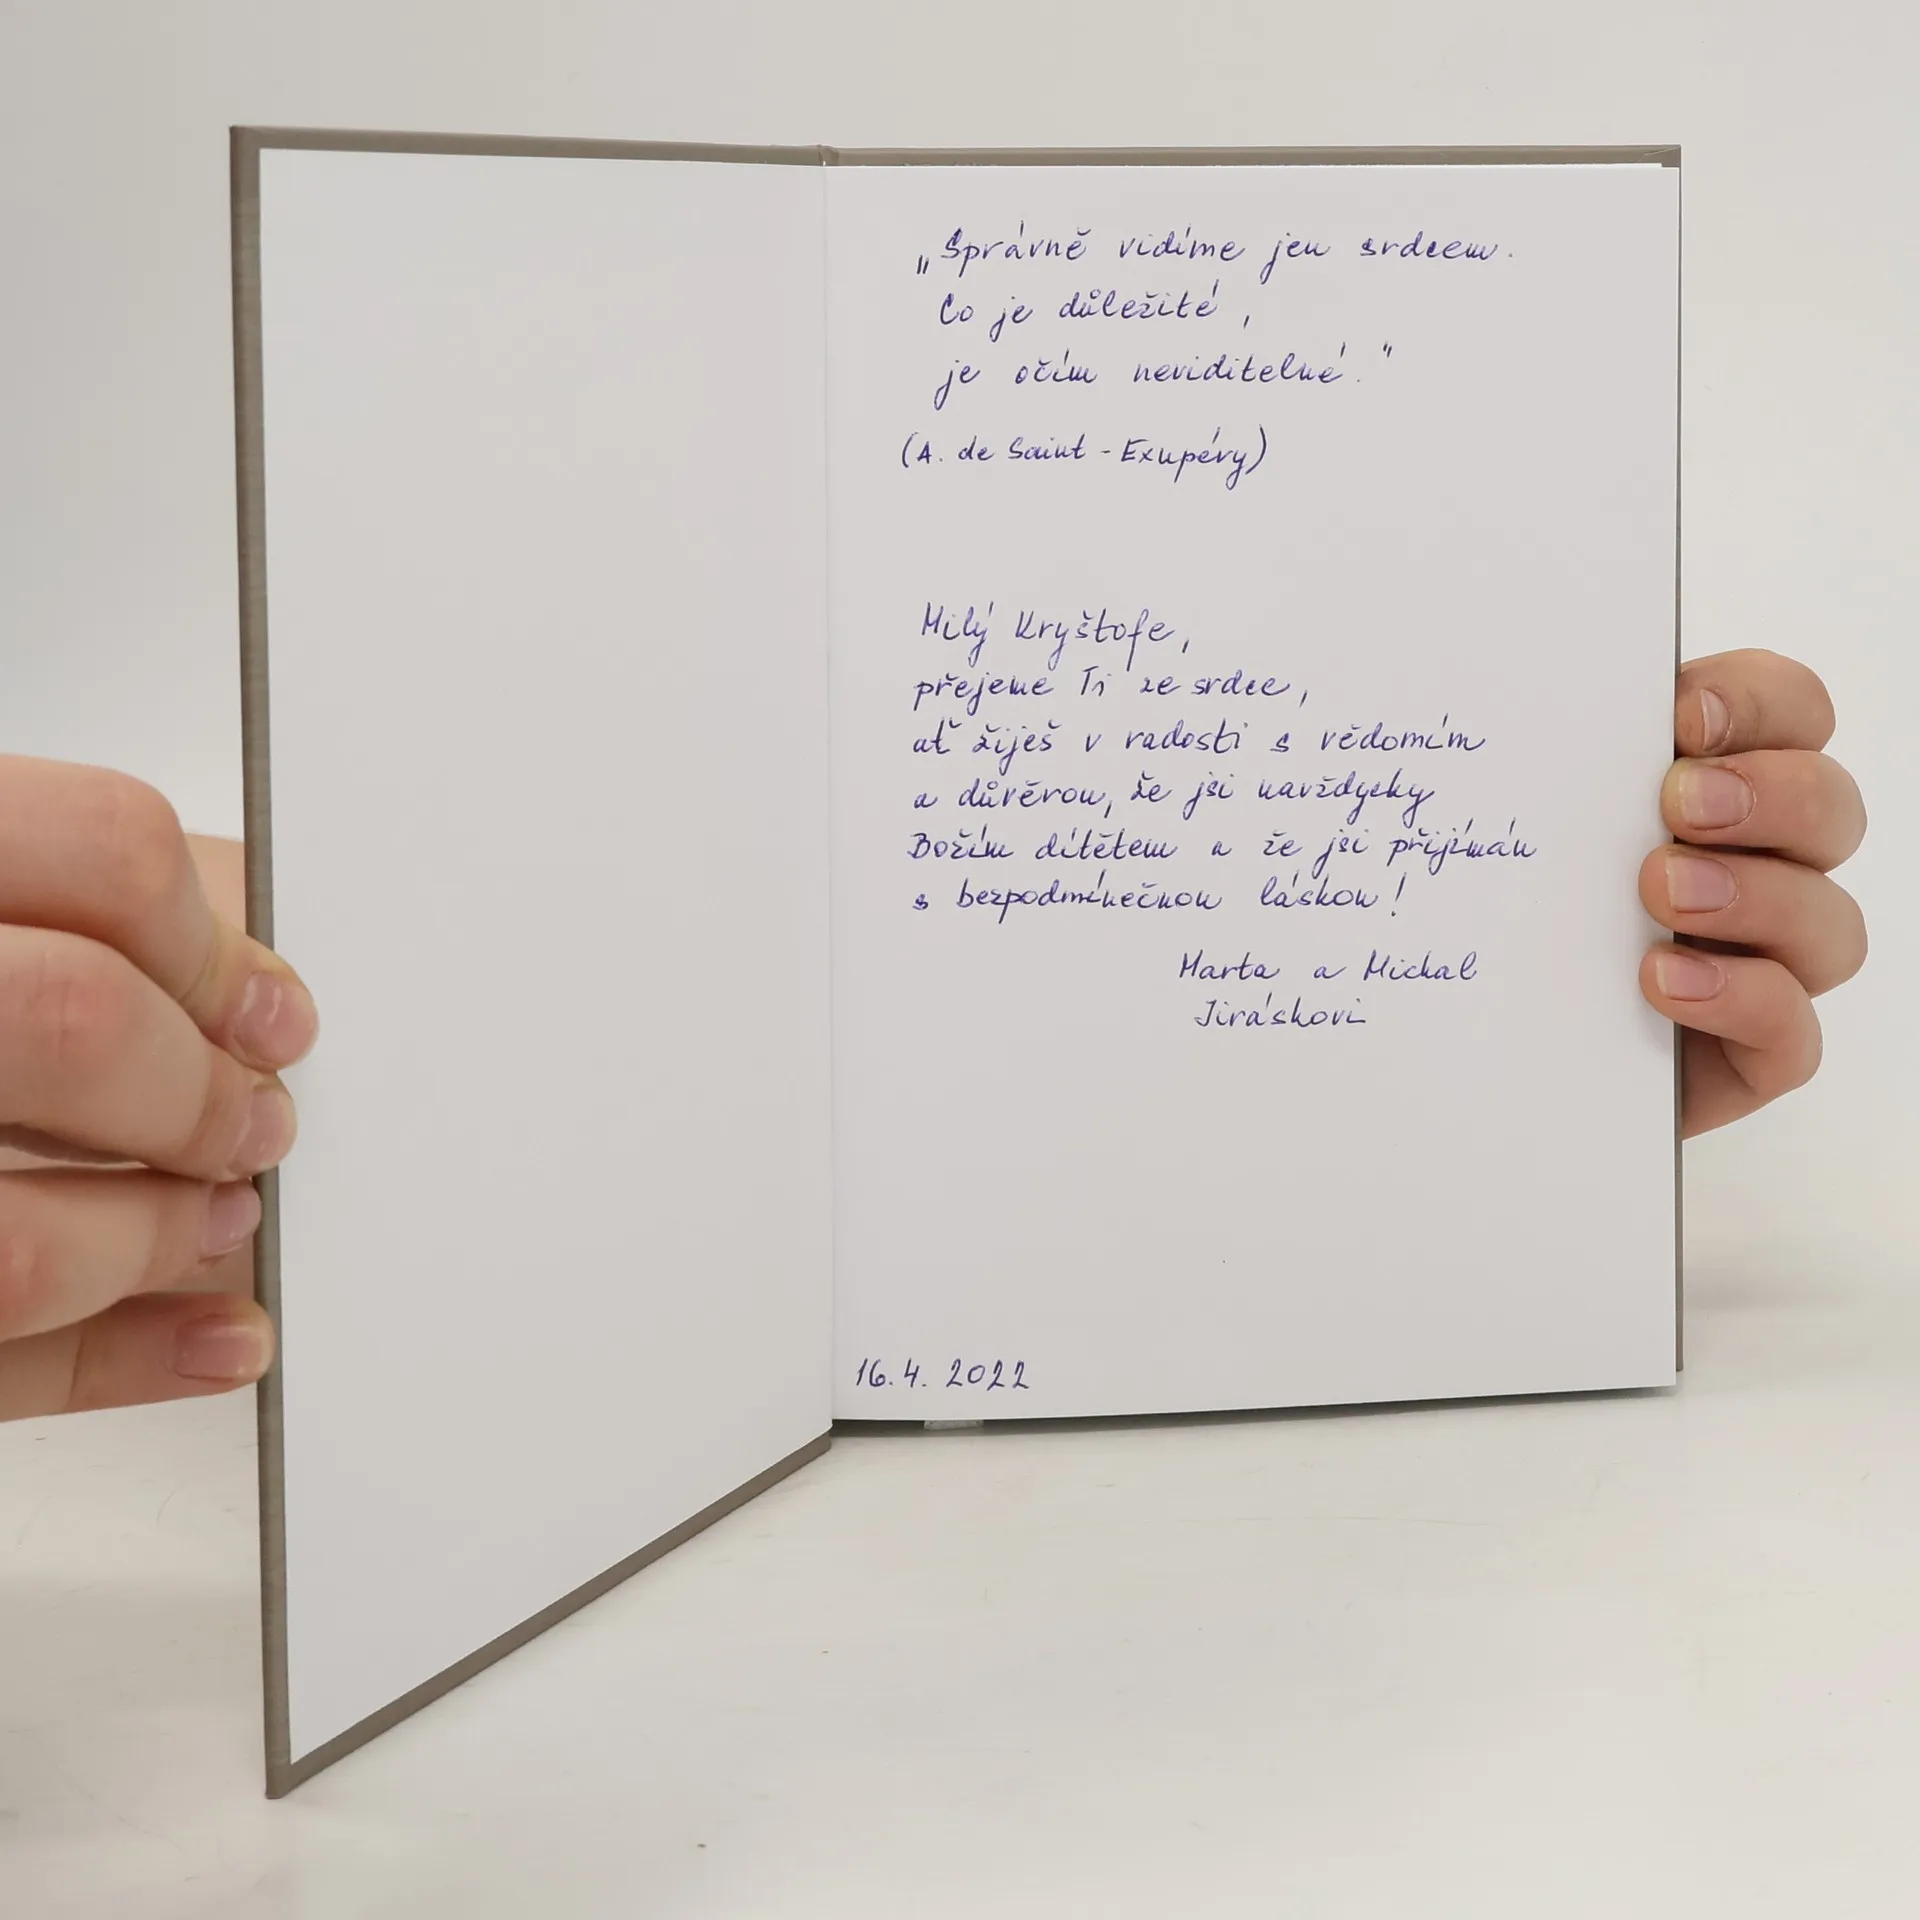 „Správně vidíme jen srdcem.
Co je důležité,
je očím neviditelné."
(A. de Saint-Exupéry)
Milý Kryštofe,
přejeme Ti ze srdce,
ať žiješ v radosti s vědomím
a důvěrou, že jsi navždycky
Božím dítětem a že jsi přijímán
s bezpodmínečnou láskou!
Marta a Michal
Jiráskovi
16.4. 2022